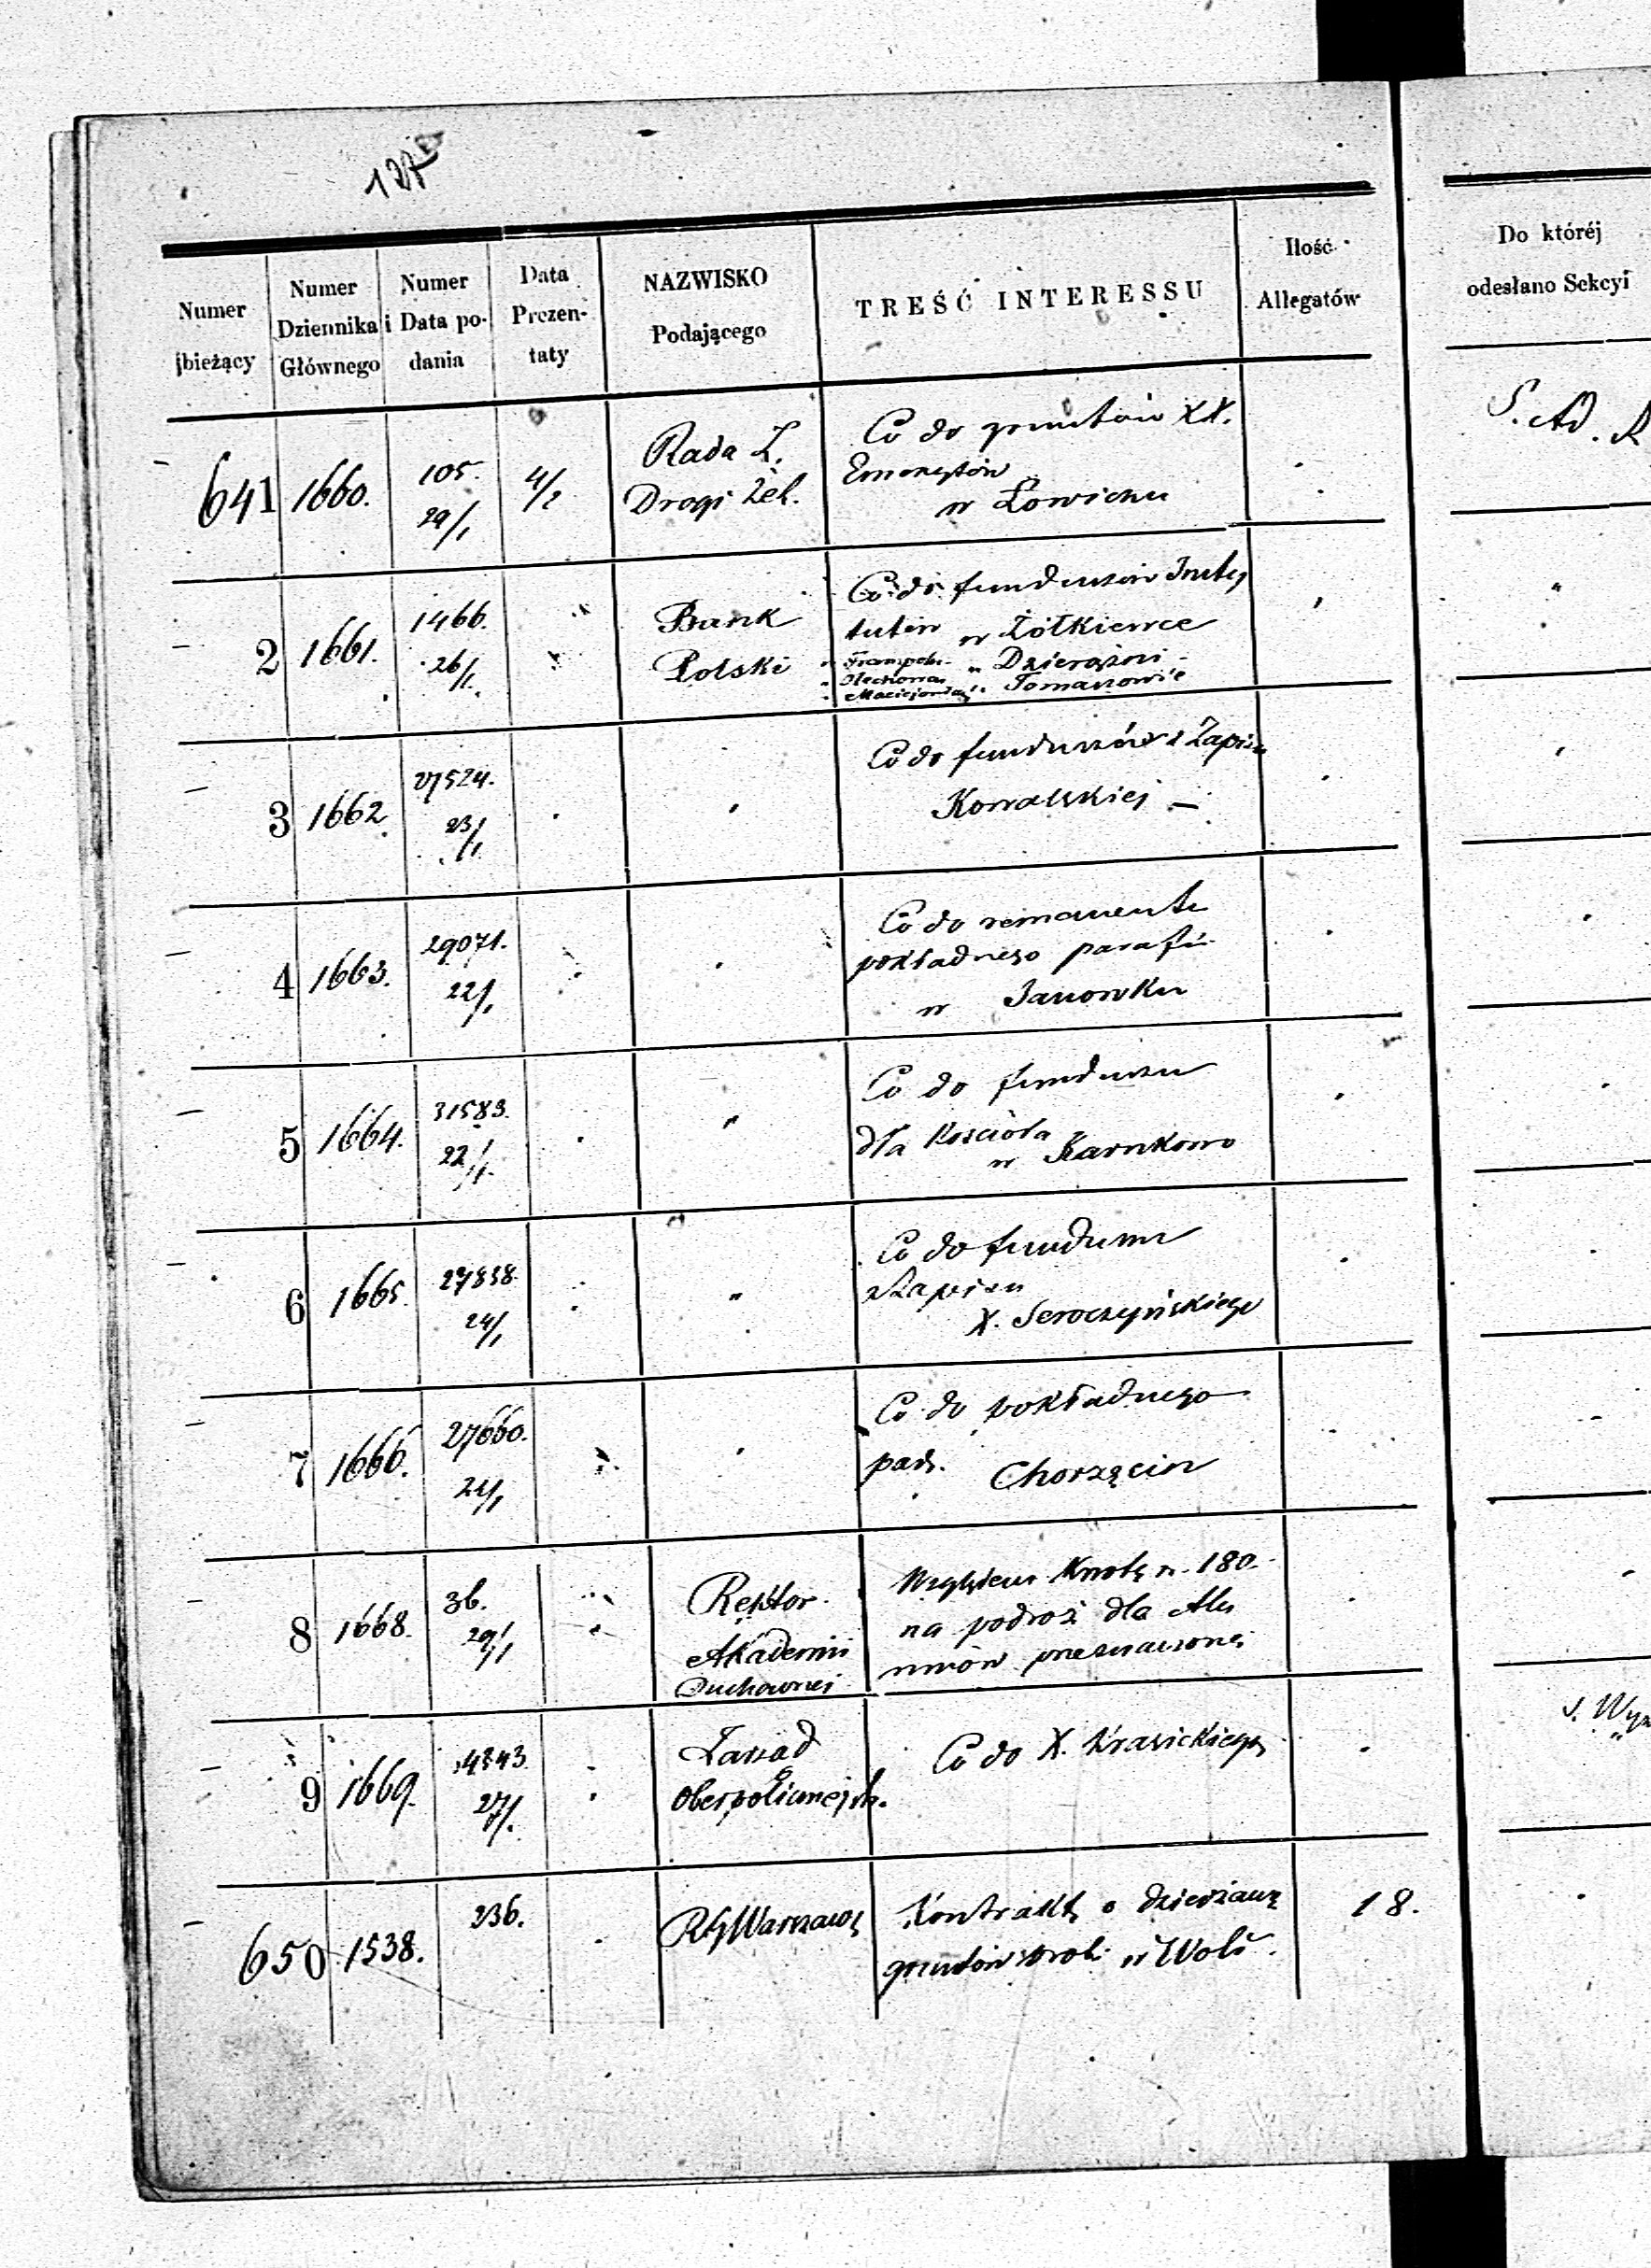 Numer bieżący
Numer Dziennika Głównego
Numer i Data podania
Data Prezentaty
NAZWISKO Podającego
TREŚĆ INTERESSU
Ilość Allegatów
Do któréj odesłano Sekcyi
641 1660. 105. 29/1 4/2
Rada Z.
Drogi Żel.
Co do gruntów XX.
Emerytów
w Łowiczu
2 1661. 1466. 26/1.
Bank
Polski
Co do funduszów Insty
tutów w Żółkiewce
" Dzierążni
" Tomaszowie
3 1662 27524. 23/1 "
Co do funduszów z Zapisu
Kowalskiej —
4 1663. 29071. 22/1 "
Co do remanentu
pokładnego parafii
w Janowku
5 1664. 31583. 22/1. "
Co do funduszu
dla Kościoła
w Karnkowo
6 1665 27838. 24/1 "
Co do funduszu
z Zapisu
X. Seroczyńskiego
7 1666. 27660. 24/1 "
Co do pokładnego
par. Chorzęcin
8 1668. 36. 29/1
Rektor
Akademii
Duchownej
Względem Kwoty r. 180.
na podroż dla Alu
mnów przeznaczonej
9 1669. 4843. 27/1.
Zarząd
Oberpolicmejstr.
Co do X. Krasickiego
650 1538. 236.
Warszawy
Kontrakty o dzierżawę
gruntów w Woli
18.